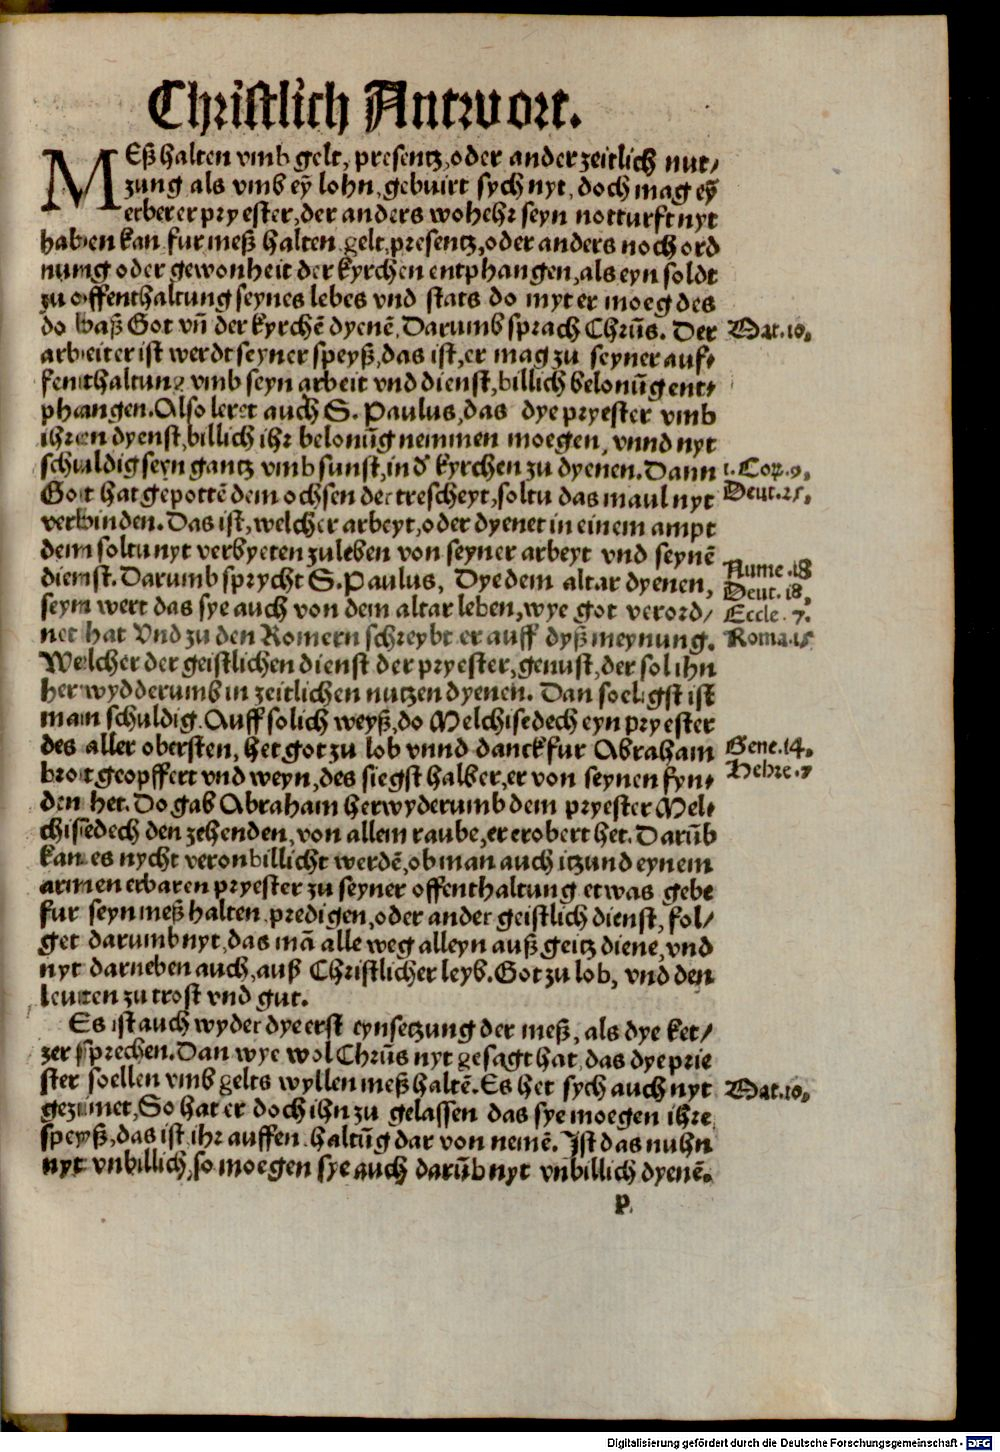 Christlich Antwort.
MEß halten vmb gelt, presentz, oder ander zeitlich nut/
zung als vmb eỹ lohn, gebuirt sych nyt, doch mag eỹ
erberer pryester, der anders wohehr seyn notturft nyt
haben kan fur meß halten gelt, presentz, oder anders noch ord
nung oder gewonheit der kyrchen entphangen, als eyn soldt
zu offenthaltung seynes lebes vnd stats do myt er moeg des
do baß Got vñ der kyrchẽ dyenẽ, Darumb sprach Chrũs. Der
Mat. 10,
arbeiter ist werdt seyner speyß, das ist, er mag zu seyner auf/
fenthaltung vmb seyn arbeit vnd dienst, billich belonũg ent/
phangen. Also leret auch S. Paulus, das dye pryester vmb
ihren dyenst, billich ihr belonũg nemmen moegen, vnnd nyt
schuldig seyn gantz vmb sunst, in d' kyrchen zu dyenen. Dann
1. Cor. 9,
Got hat gepottẽ dem ochsen der trescheyt, soltu das maul nyt
Deut. 25,
verbinden. Das ist, welcher arbeyt, oder dyenet in einem ampt
dem soltu nyt verbyeten zu leben von seyner arbeyt vnd seynẽ
dienst. Darumb sprycht S. Paulus, Dye dem altar dyenen,
Nume. 18
Deut. 18,
seyn wert das sye auch von dem altar leben, wye got verord/
Eccle. 7.
net hat Vnd zu den Romern schreybt er auff dyß meynung.
Roma. 15
Welcher der geistlichen dienst der pryester, genust, der sol ihn
her wydderumb in zeitlichen nutzen dyenen. Dan soeligst ist
man schuldig. Auff solich weyß, do Melchisedech eyn pryester
des aller obersten, het got zu lob vnnd danck fur Abraham
Gene. 14,
brot geopffert vnd weyn, des siegst halber, er von seynen fyn/
Hebre. 7
den het. Do gab Abraham herwyderumb dem pryester Mel/
chisedech den zehenden, von allem raube, er erobert het. Darũb
kan es nycht veronbillicht werdẽ, ob man auch itzund eynem
armen erbaren pryester zu seyner offenthaltung etwas gebe
fur seyn meß halten, predigen, oder ander geistlich dienst, fol/
get darumb nyt, das mã alle weg alleyn auß geitz diene, vnd
nyt darneben auch, auß Christlicher leyb. Got zu lob, vnd den
leuten zu trost vnd gut.
Es ist auch wyder dye erst eynsetzung der meß, als dye ket/
zer sprechen. Dan wye wol Chrũs nyt gesagt hat, das dye prie
ster soellen vmb gelts wyllen meß haltẽ. Es het sych auch nyt
Mat. 10,
gezimet, So hat er doch ihn zu gelassen das sye moegen ihre
speyß, das ist ihr auffenthaltũg dar von nemẽ. Ist das nuhn
nyt vnbillich, so moegen sye auch darũb nyt vnbillich dyenẽ.
P
Digitalisierung gefördert durch die Deutsche Forschungsgemeinschaft - DFG